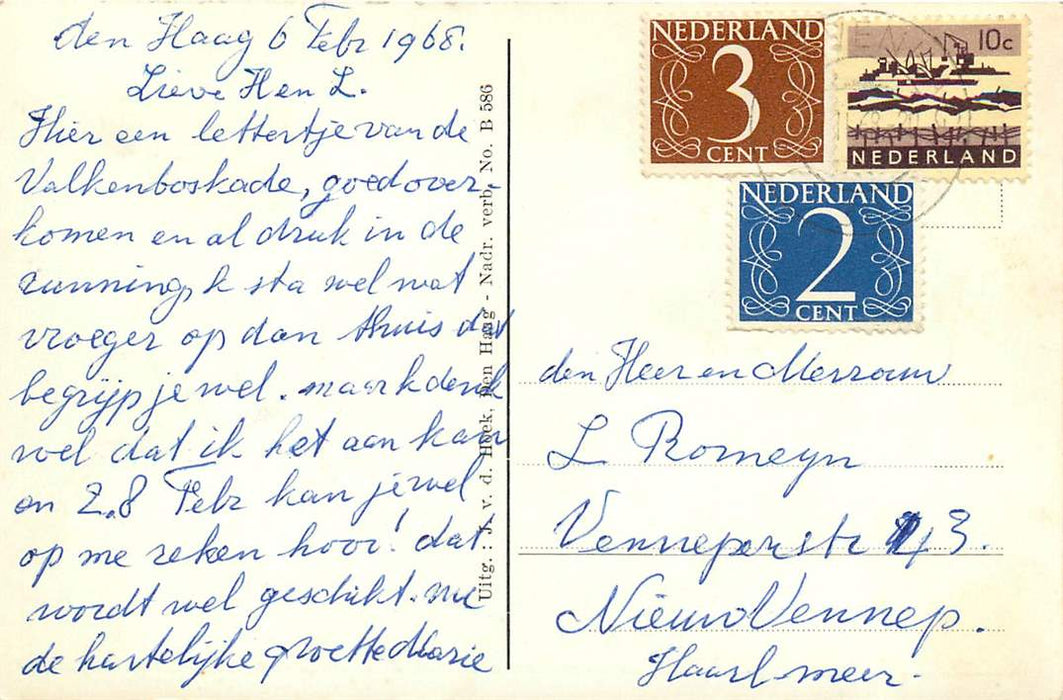 den Haag 6 Febr 1968.
Lieve H en L.
Hier een lettertje van de
Valkenboskade, goed over-
komen en al druk in de
running, k sta wel wat
vroeger op dan thuis dat
begrijp je wel. maar k denk
wel dat ik het aan kan
en 2.8 Febr kan je wel
op me reken hoor! dat
wordt wel geschikt. nu
de hartelijke groette Marie
Uitg.: J. v. d. Hoek, Den Haag - Nadr. verb. No. B 586
NEDERLAND
3
CENT
10c
NEDERLAND
NEDERLAND
2
CENT
den Heer en Mevrouw
L Romeyn
Venneperstr 43.
Nieuw Vennep.
Haarl-meer.